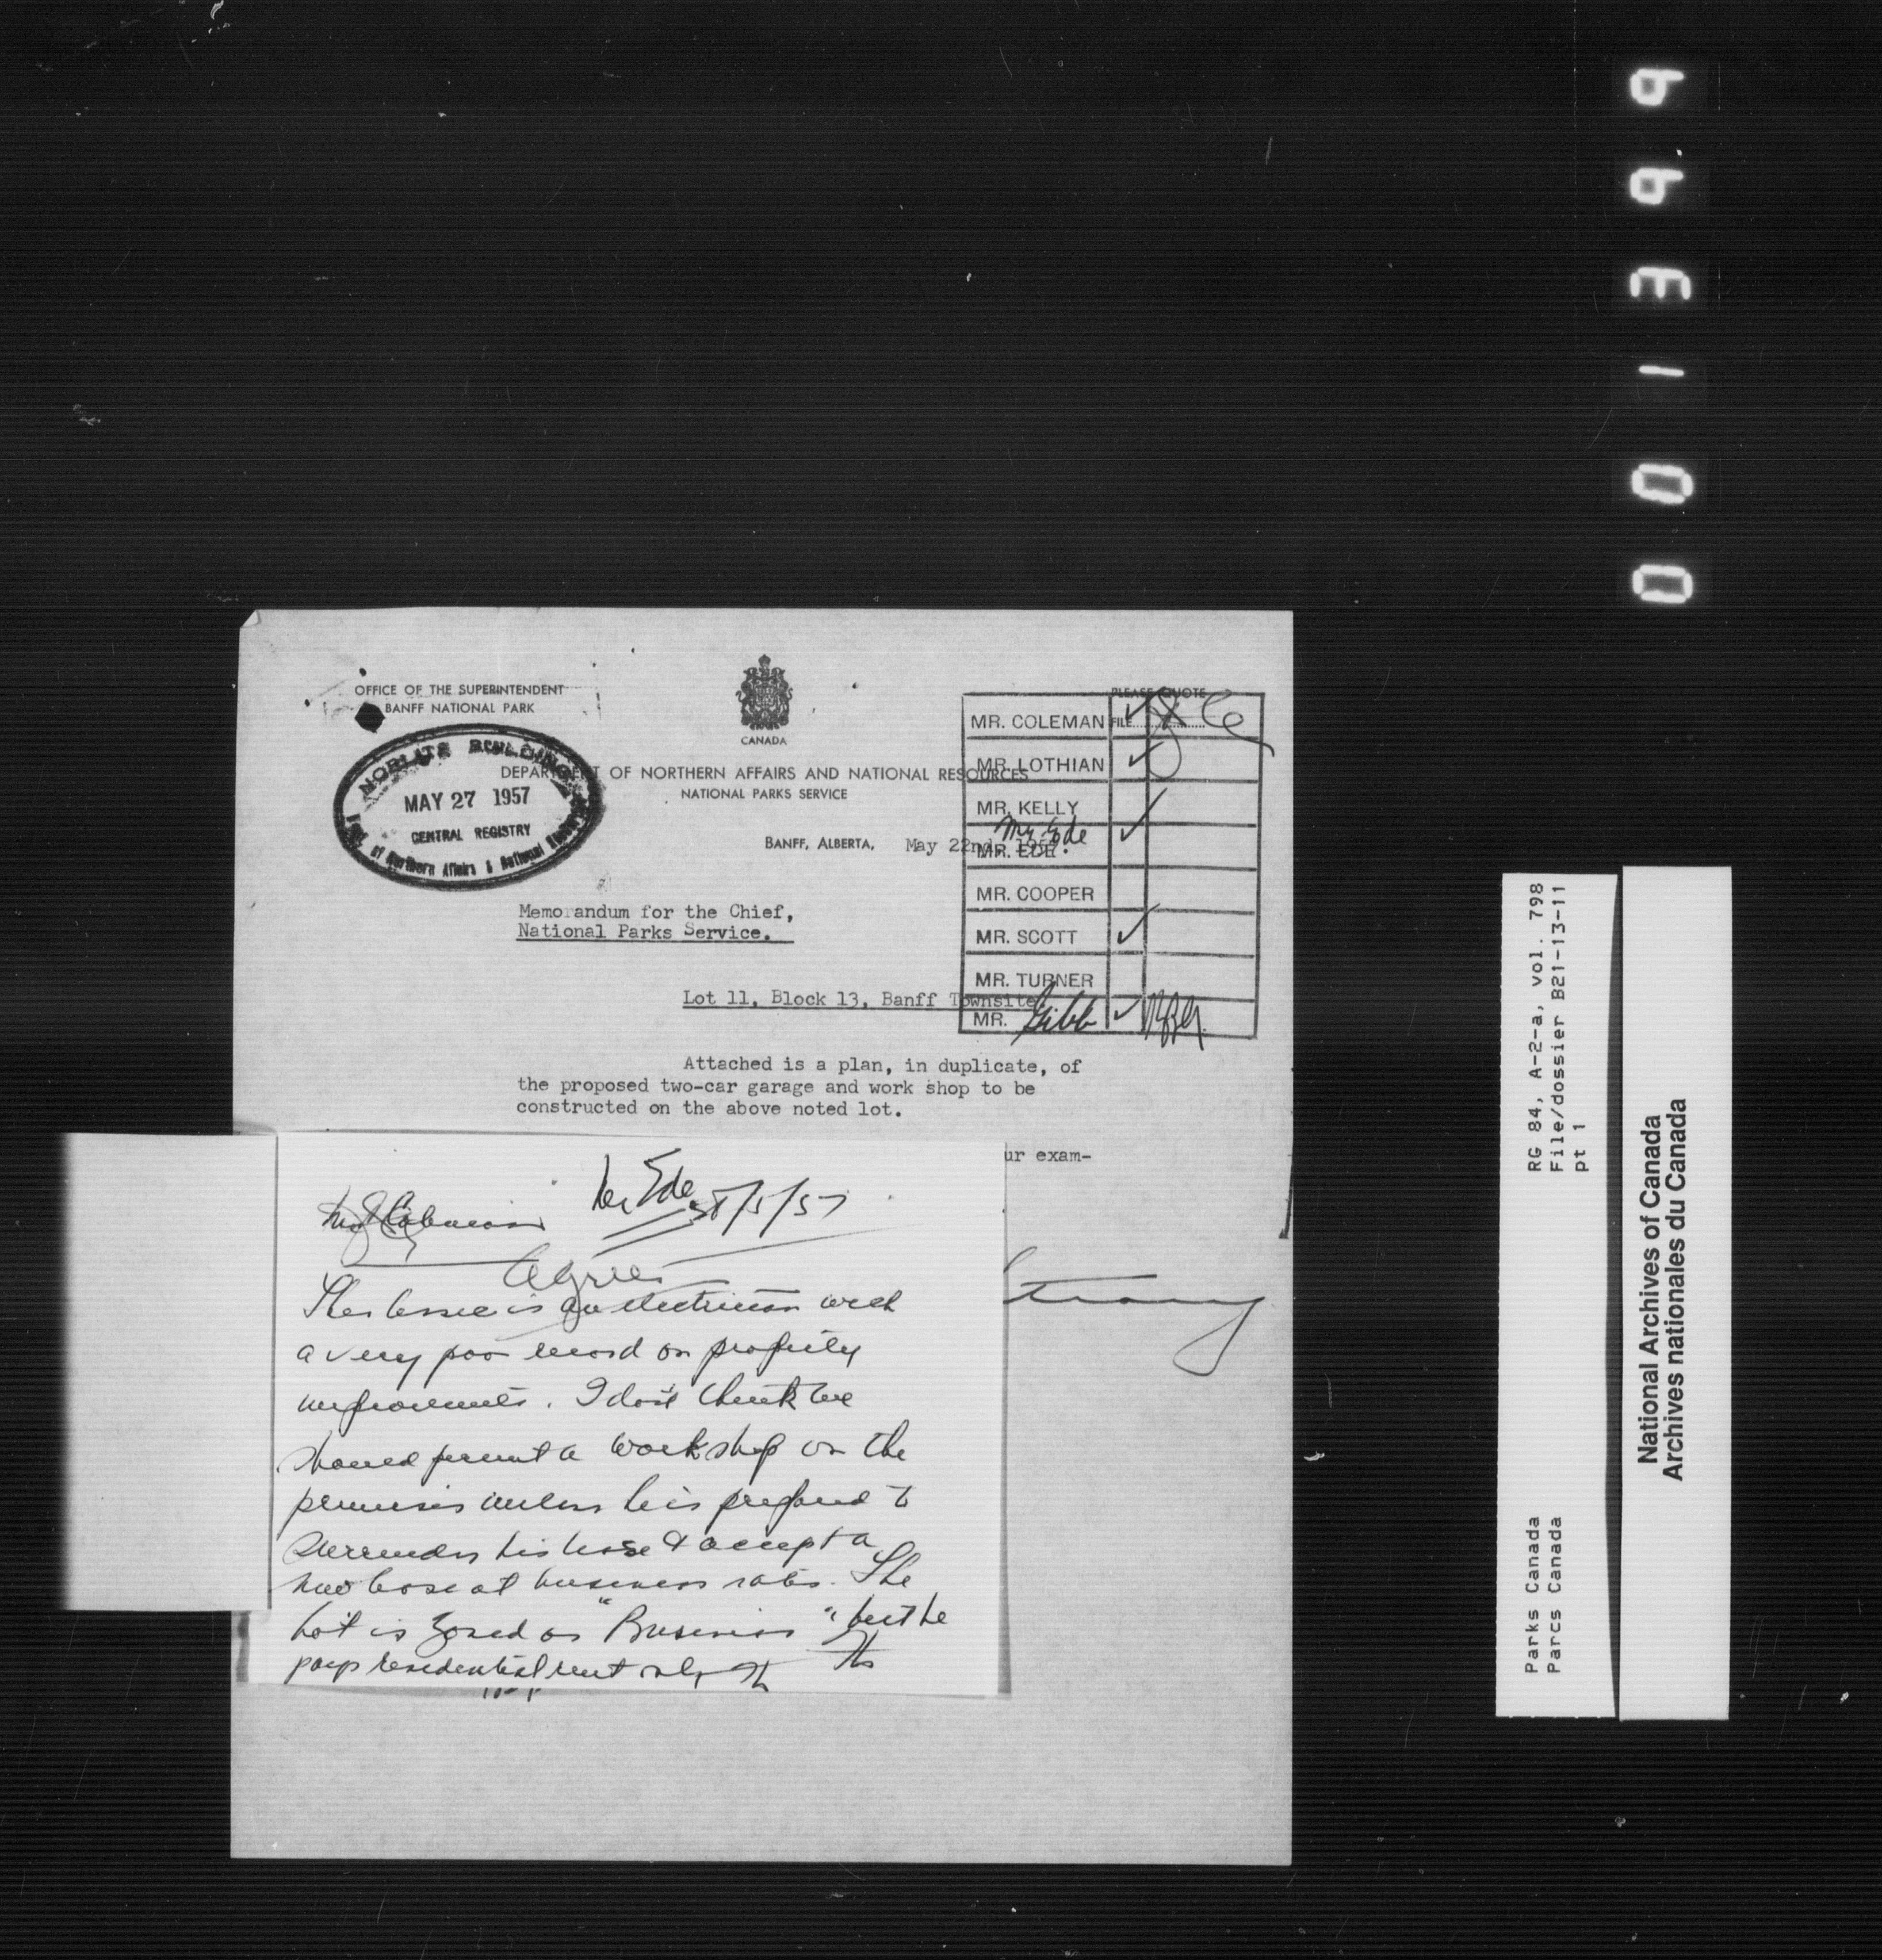 OFFICE OF THE SUPERINTENDENT
BANFF NATIONAL PARK
CANADA
PLEASE QUOTE
FILE
DEPARTMENT OF NORTHERN AFFAIRS AND NATIONAL RESOURCES
NATIONAL PARKS SERVICE
NORLITE BUILDING
MAY 27 1957
CENTRAL REGISTRY
of Northern Affairs & National
BANFF, ALBERTA, May 22nd, 1957.
MR. COLEMAN
MR. LOTHIAN
MR. KELLY
Mr. Ede
MR. EDE
MR. COOPER
MR. SCOTT
MR. TURNER
MR. Gibb
Memorandum for the Chief,
National Parks Service.
Lot 11, Block 13, Banff Townsite.
Attached is a plan, in duplicate, of
the proposed two-car garage and work shop to be
constructed on the above noted lot.
ur exam-
Mr Coleman
Mr Ede
28/5/57
Agree
The lessee is an electrician with
a very poor record on property
improvements. I don't think we
should permit a workshop on the
premises unless he is prepared to
surrender his lease & accept a
new lease at business rates. The
lot is zoned as "Business" but he
pays residential rent only
RG 84, A-2-a, vol. 798
File/dossier B21-13-11
pt 1
Parks Canada
Parcs Canada
National Archives of Canada
Archives nationales du Canada
001399